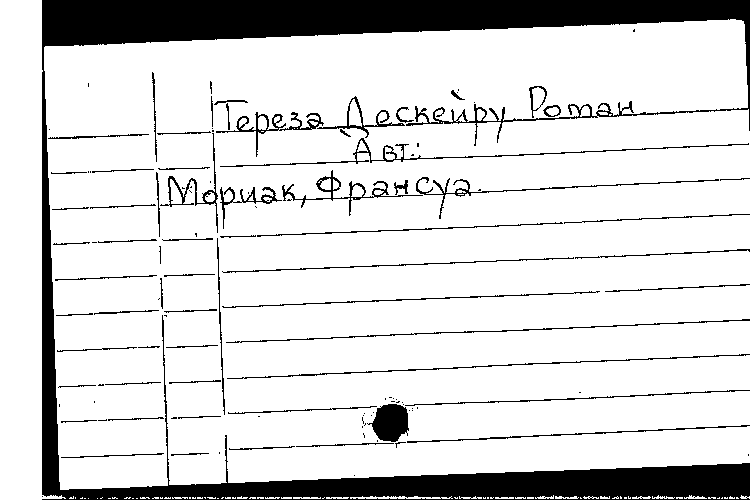 Тереза Дескейру Роман.
Авт.:
Мориак, Франсуа.